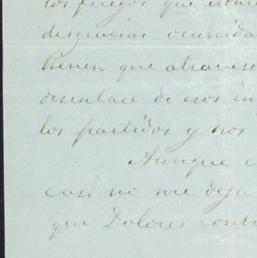 los fuegos que
desgracias ocurrida
tienen que atravese
desenlace de esos in
los partidos y nos
Aunque
casi no me deja
que Dolores cont